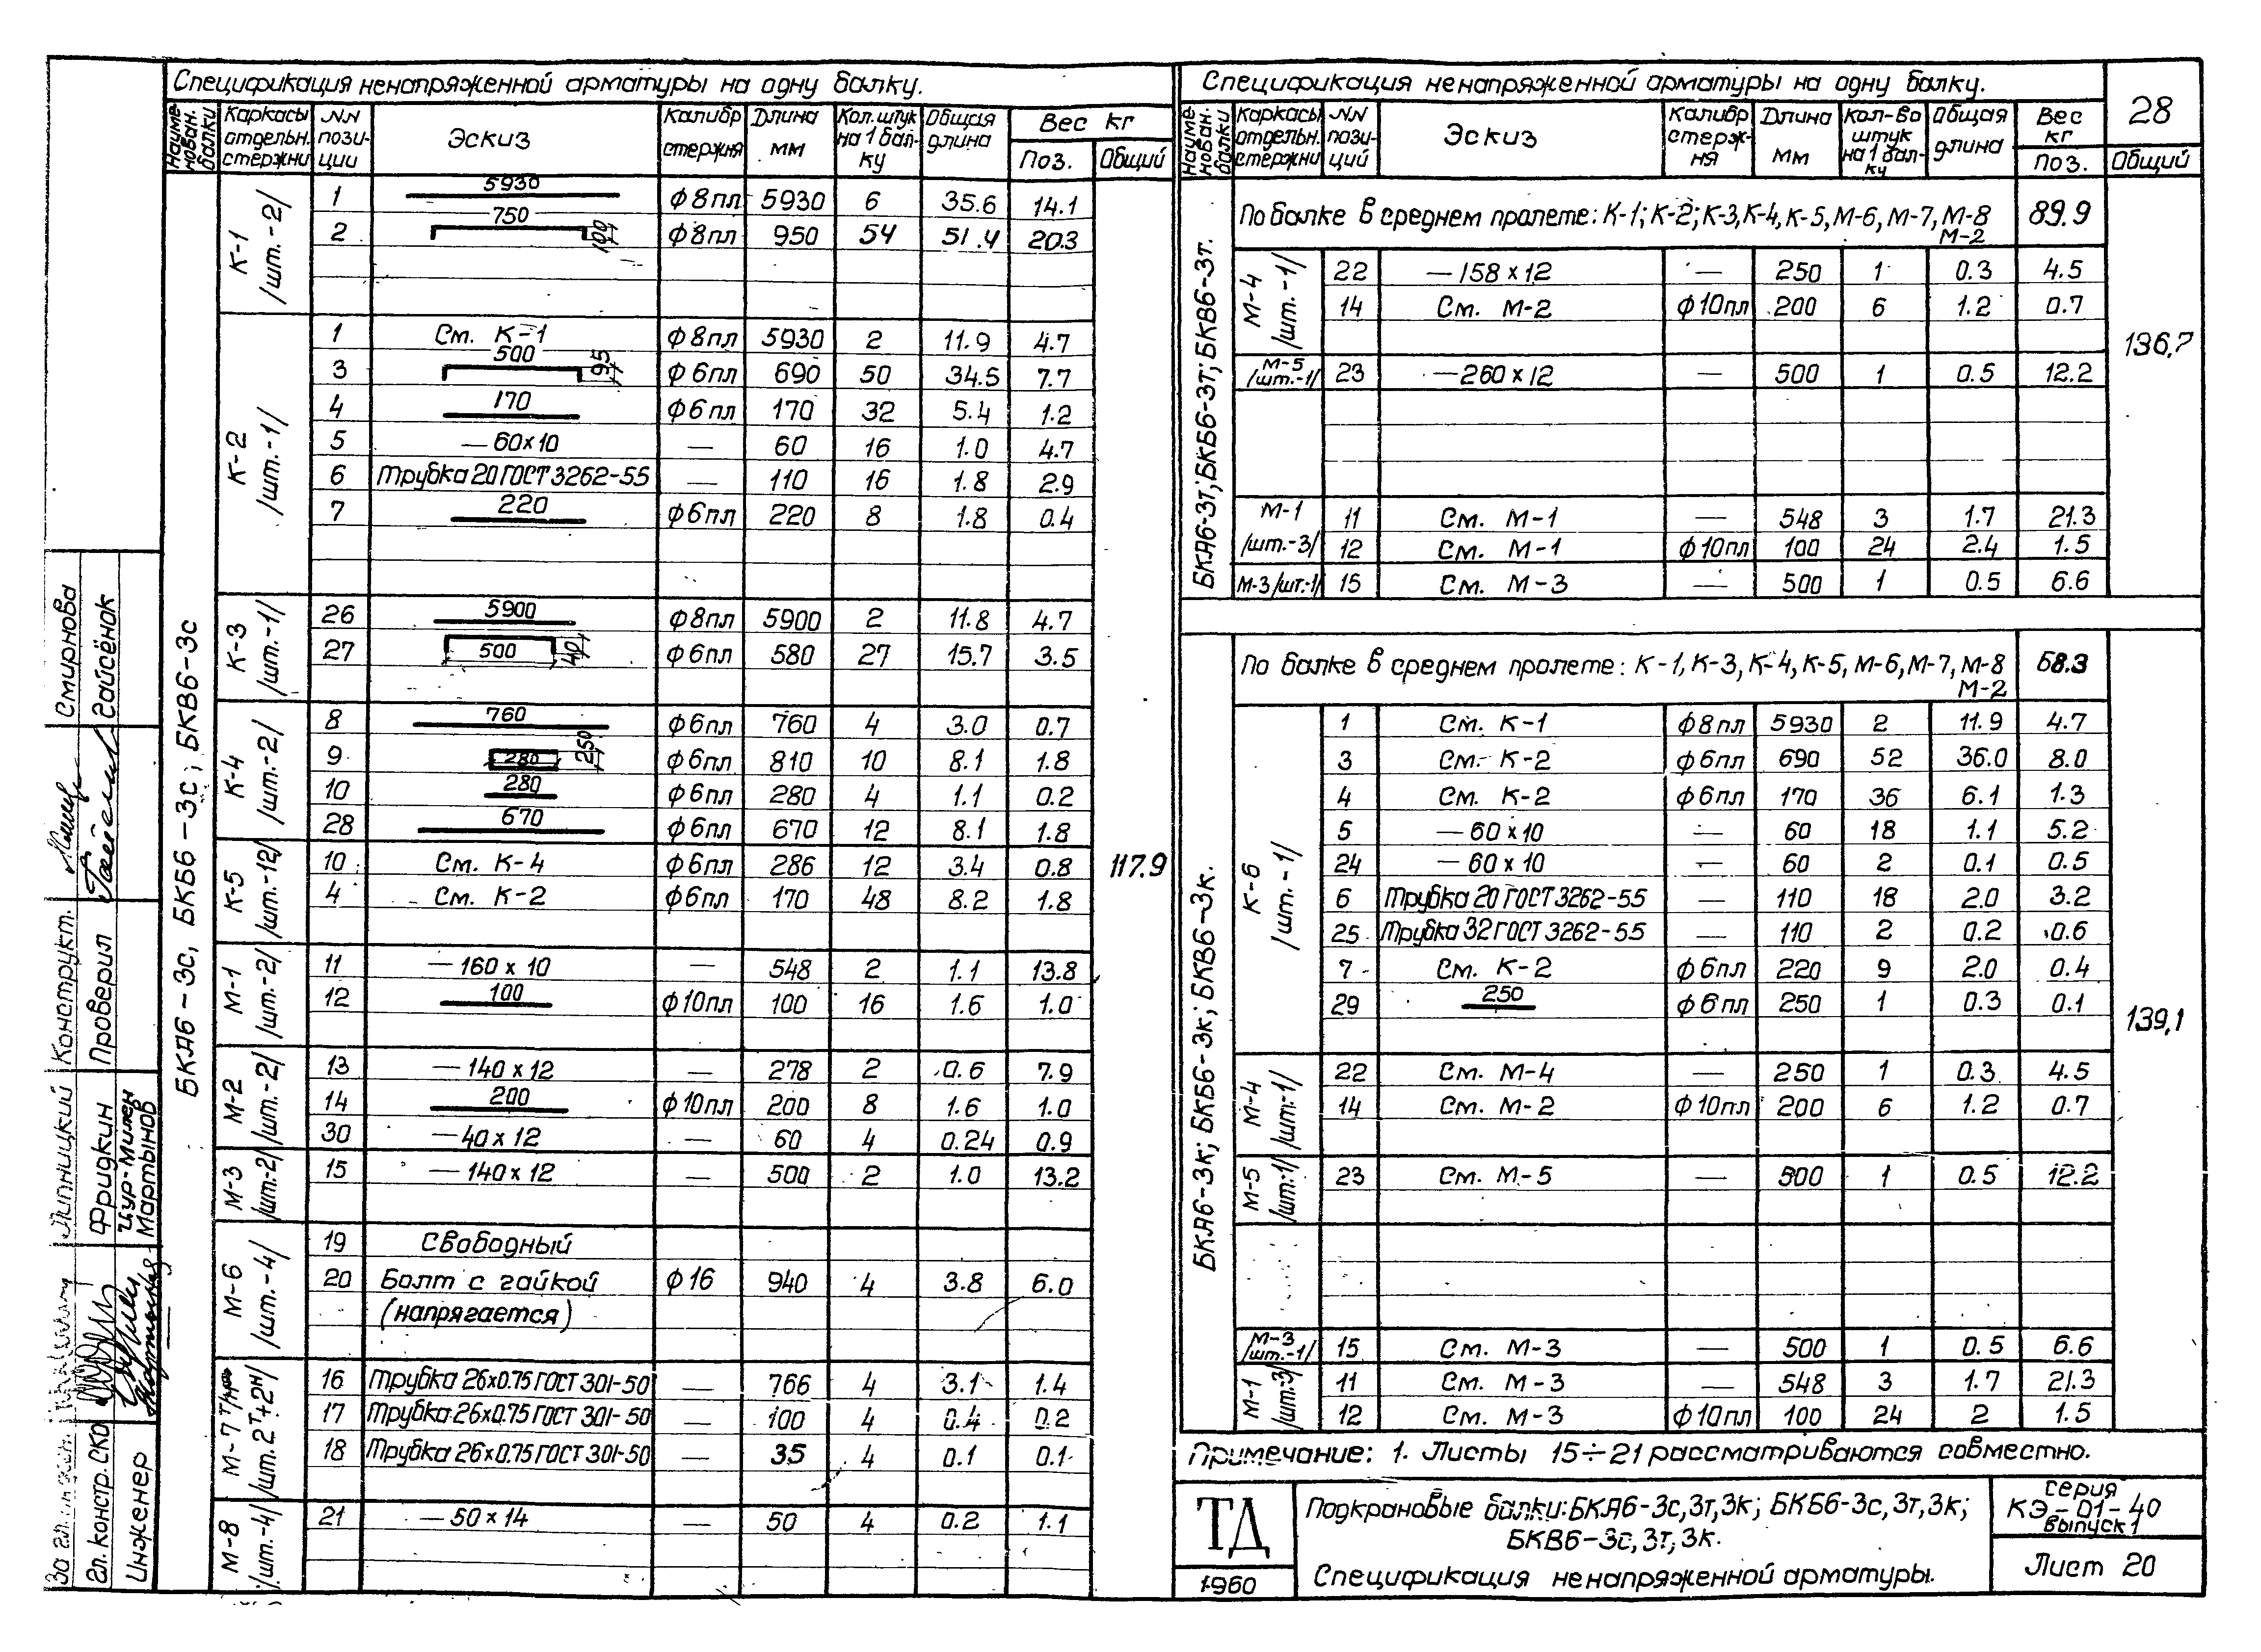 Спецификация ненапряженной арматуры на одну балку.
Наиме-нован. балки | Каркасы отдельн. стержни | NN пози-ции | Эскиз | Калибр стержня | Длина мм | Кол. штук на 1 бал-ку | Общая длина | Вес кг Поз. | Общий
БКА6-3с, БКБ6-3с; БКВ6-3с
117.9
К-1 /шт.-2/
1 5930 ф8пл 5930 6 35.6 14.1
2 750 100 ф8пл 950 54 51.4 20.3
К-2 /шт.-1/
1 См. К-1 ф8пл 5930 2 11.9 4.7
3 500 95 ф6пл 690 50 34.5 7.7
4 170 ф6пл 170 32 5.4 1.2
5 — 60×10 — 60 16 1.0 4.7
6 Трубка 20 ГОСТ 3262-55 — 110 16 1.8 2.9
7 220 ф6пл 220 8 1.8 0.4
К-3 /шт.-1/
26 5900 ф8пл 5900 2 11.8 4.7
27 500 40 ф6пл 580 27 15.7 3.5
К-4 /шт.-2/
8 760 ф6пл 760 4 3.0 0.7
9 280 250 ф6пл 810 10 8.1 1.8
10 280 ф6пл 280 4 1.1 0.2
28 670 ф6пл 670 12 8.1 1.8
К-5 /шт.-12/
10 См. К-4 ф6пл 286 12 3.4 0.8
4 См. К-2 ф6пл 170 48 8.2 1.8
М-1 /шт.-2/
11 — 160×10 — 548 2 1.1 13.8
12 100 ф10пл 100 16 1.6 1.0
М-2 /шт.-2/
13 — 140×12 — 278 2 0.6 7.9
14 200 ф10пл 200 8 1.6 1.0
30 — 40×12 — 60 4 0.24 0.9
М-3 /шт.-2/
15 — 140×12 — 500 2 1.0 13.2
М-6 /шт.-4/
19 Свободный
20 Болт с гайкой ф16 940 4 3.8 6.0
(напрягается)
М-7 /шт. 2т+2н/
16 Трубка 26×0.75 ГОСТ 301-50 — 766 4 3.1 1.4
17 Трубка 26×0.75 ГОСТ 301-50 — 100 4 0.4 0.2
18 Трубка 26×0.75 ГОСТ 301-50 — 35 4 0.1 0.1
М-8 /шт.-4/
21 — 50×14 — 50 4 0.2 1.1
Спецификация ненапряженной арматуры на одну балку.
28
Наиме-нован. балки | Каркасы отдельн. стержни | NN пози-ций | Эскиз | Калибр стерж-ня | Длина мм | Кол-во штук на 1 бал-ку | Общая длина | Вес кг Поз. | Общий
БКА6-3т; БКБ6-3т; БКВ6-3т.
По балке в среднем пролете: К-1; К-2; К-3, К-4, К-5, М-6, М-7, М-8 89.9
М-2
136,7
М-4 /шт.-1/
22 — 158×12 — 250 1 0.3 4.5
14 См. М-2 ф10пл 200 6 1.2 0.7
М-5 /шт.-1/
23 — 260×12 — 500 1 0.5 12.2
М-1 /шт.-3/
11 См. М-1 — 548 3 1.7 21.3
12 См. М-1 ф10пл 100 24 2.4 1.5
М-3 /шт.-1/ 15 См. М-3 — 500 1 0.5 6.6
БКА6-3к; БКБ6-3к; БКВ6-3к.
По балке в среднем пролете: К-1, К-3, К-4, К-5, М-6, М-7, М-8 68.3
М-2
139,1
К-6 /шт.-1/
1 См. К-1 ф8пл 5930 2 11.9 4.7
3 См. К-2 ф6пл 690 52 36.0 8.0
4 См. К-2 ф6пл 170 36 6.1 1.3
5 — 60×10 — 60 18 1.1 5.2
24 — 60×10 — 60 2 0.1 0.5
6 Трубка 20 ГОСТ 3262-55 — 110 18 2.0 3.2
25 Трубка 32 ГОСТ 3262-55 — 110 2 0.2 0.6
7 См. К-2 ф6пл 220 9 2.0 0.4
29 250 ф6пл 250 1 0.3 0.1
М-4 /шт.-1/
22 См. М-4 — 250 1 0.3 4.5
14 См. М-2 ф10пл 200 6 1.2 0.7
М-5 /шт.-1/
23 См. М-5 — 500 1 0.5 12.2
М-3 /шт.-1/
15 См. М-3 — 500 1 0.5 6.6
М-1 /шт.-3/
11 См. М-3 — 548 3 1.7 21.3
12 См. М-3 ф10пл 100 24 2 1.5
Примечание: 1. Листы 15÷21 рассматриваются совместно.
ТД
1960
Подкрановые балки: БКА6-3с, 3т, 3к; БКБ6-3с, 3т, 3к;
БКВ6-3с, 3т, 3к.
Спецификация ненапряженной арматуры.
серия
КЭ-01-40
выпуск 1
Лист 20
Конструкт. Смирнова
Проверил Гайсёнок
Липницкий
Гл. констр. СКО Фридкин
Инженер Цур-Милен
Мартынов